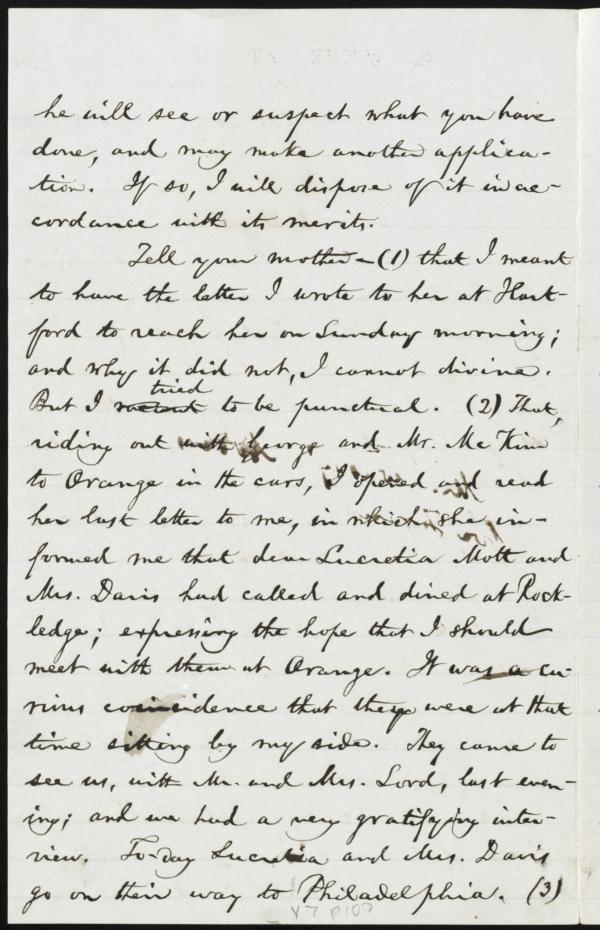 he will see or suspect what you have
done, and may make another applica-
tion. If so, I will dispose of it in ac-
cordance with its merits.
Tell your mother – (1) that I meant
to have the letter I wrote to her at Hart-
ford to reach her on Sunday morning;
and why it did not, I cannot divine.
tried
But I to be punctual. (2) That,
riding out with George and Mr. McKim
to Orange in the cars, I opened and read
her last letter to me, in which she in-
formed me that dear Lucretia Mott and
Mrs. Davis had called and dined at Rock-
ledge; expressing the hope that I should
meet with them at Orange. It was a cu-
rious coincidence that they were at that
time sitting by my side. They came to
see us, with Mr. and Mrs. Lord, last even-
ing; and we had a very gratifying inter-
view. To-day Lucretia and Mrs. Davis
go on their way to Philadelphia. (3)
V7 p107